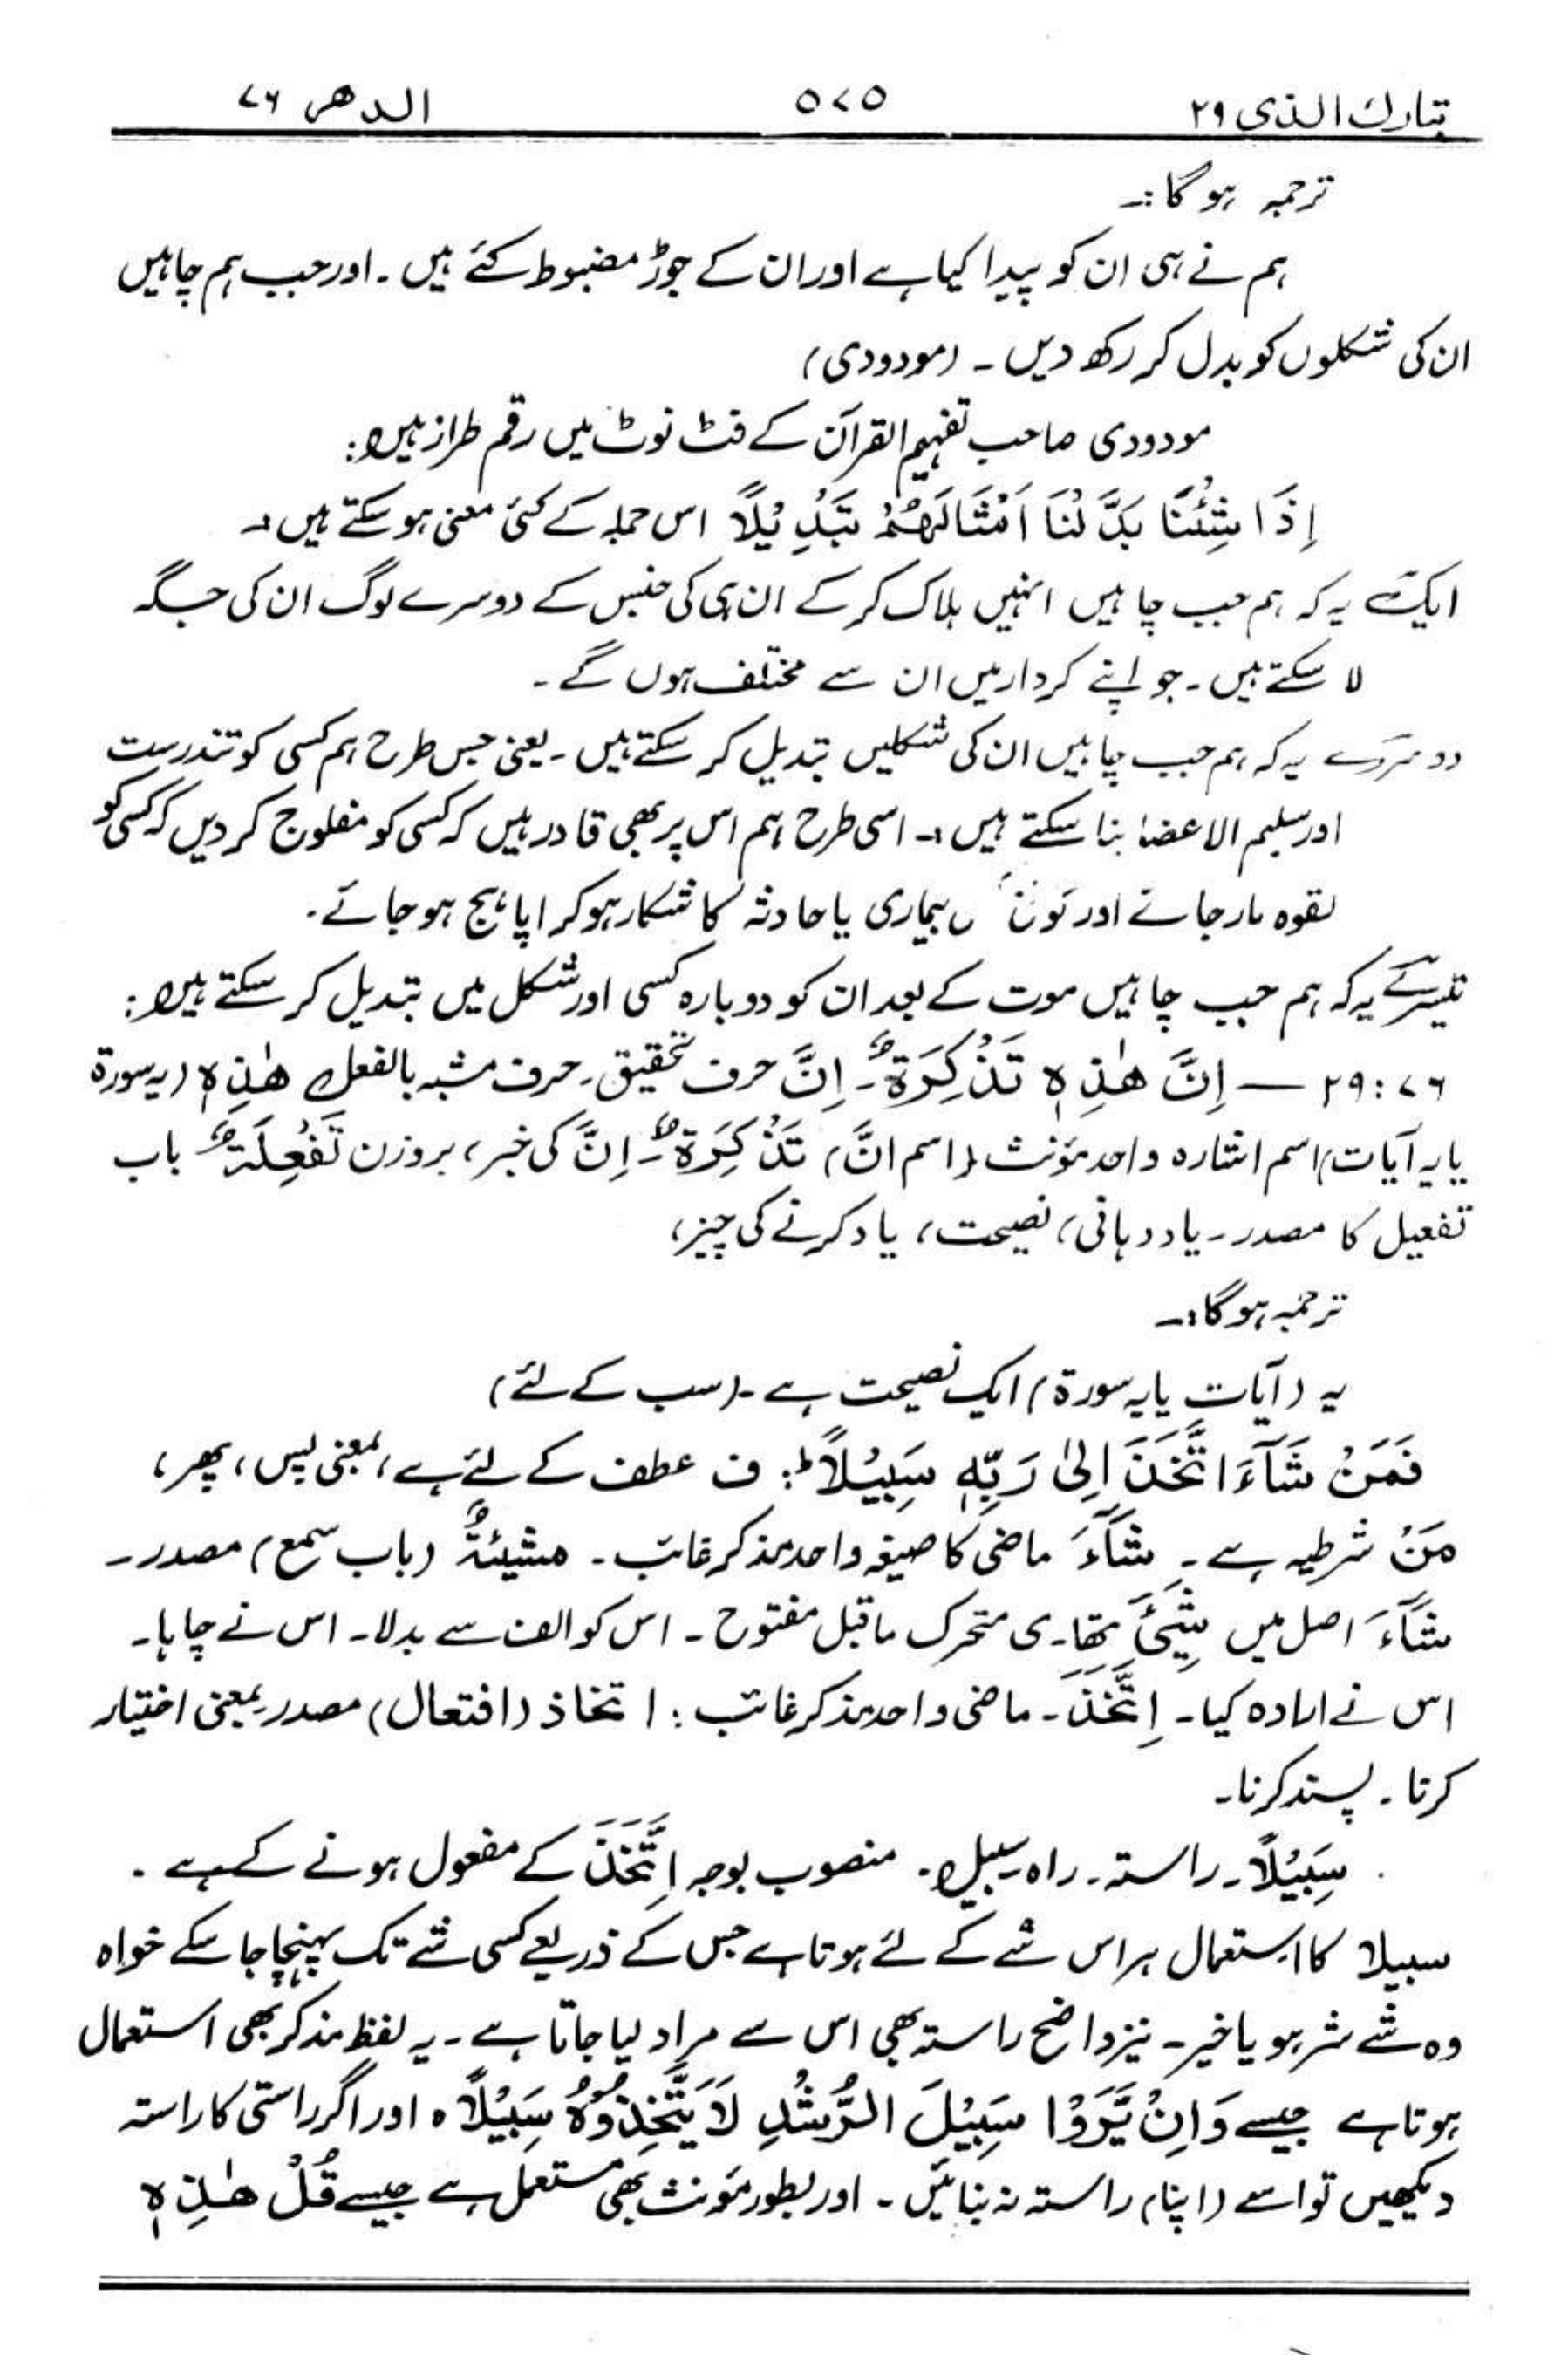 تبارك الذی ۲۹ ۵۷۵ الدهر ۷۶
ترجمہ ہوگا:۔
ہم نے ہی ان کو پیدا کیا ہے اور ان کے جوڑ مضبوط کئے ہیں ۔ اور جب ہم چاہیں
ان کی شکلوں کو بدل کر رکھ دیں ۔ (مودودی)
مودودی صاحب تفہیم القرآن کے فٹ نوٹ میں رقم طراز ہیں:
اِذَا شِئْنَا بَدَّلْنَا اَمْثَالَهُمْ تَبْدِيْلًا اس جملہ کے کئی معنی ہو سکتے ہیں:۔
ایک یہ کہ ہم جب چاہیں انہیں ہلاک کر کے ان ہی کی جنس کے دوسرے لوگ ان کی جگہ
لا سکتے ہیں ۔ جو اپنے کردار میں ان سے مختلف ہوں گے ۔
دوسرے یہ کہ ہم جب چاہیں ان کی شکلیں تبدیل کر سکتے ہیں ۔ یعنی جس طرح ہم کسی کو تندرست
اور سلیم الاعضا بنا سکتے ہیں :۔ اسی طرح ہم اس پر بھی قادر ہیں کہ کسی کو مفلوج کر دیں کہ کسی کو
لقوہ مار جائے اور بیماری یا حادثہ کا شکار ہو کر اپاہیج ہو جائے ۔
تیسرے یہ کہ ہم جب چاہیں موت کے بعد ان کو دوبارہ کسی اور شکل میں تبدیل کر سکتے ہیں:
۷۶:۲۹ — اِنَّ هٰذِهٖ تَذْكِرَةٌ ۔ اِنَّ حرف تحقیق ۔ حرف مشبہ بالفعل هٰذِهٖ (یہ سورۃ
یا یہ آیات) اسم اشارہ واحد مؤنث (اسم انَّ) تَذْكِرَةٌ ۔ اِنَّ کی خبر، بروزن تَفْعِلَةٌ باب
تفعیل کا مصدر ۔ یاد دہانی، نصیحت، یاد کرنے کی چیز،
ترجمہ ہوگا:۔
یہ (آیات یا یہ سورۃ) ایک نصیحت ہے ۔ (سب کے لئے)
فَمَنْ شَآءَ اتَّخَذَ اِلٰی رَبِّهٖ سَبِيْلًا ؕ: ف عطف کے لئے ہے، بمعنی پس، پھر،
مَنْ شرطیہ ہے ۔ شَآءَ ماضی کا صیغہ واحد مذکر غائب ۔ مشيئةٌ (باب سمع) مصدر ۔
شَآءَ اصل میں شَيِئَ تھا ۔ ی متحرک ماقبل مفتوح ۔ اس کو الف سے بدلا ۔ اس نے چاہا ۔
اس نے ارادہ کیا ۔ اِتَّخَذَ ۔ ماضی واحد مذکر غائب : اتخاذ (افتعال) مصدر بمعنی اختیار
کرنا ۔ پسند کرنا ۔
سَبِيْلًا ۔ راستہ ۔ راہ سبیل ۔ منصوب بوجہ اِتَّخَذَ کے مفعول ہونے کے ہے ۔
سبیلا کا استعمال ہر اس شے کے لئے ہوتا ہے جس کے ذریعے کسی شے تک پہنچا جا سکے خواہ
وہ شے شر ہو یا خیر ۔ نیز واضح راستہ بھی اس سے مراد لیا جاتا ہے ۔ یہ لفظ مذکر بھی استعمال
ہوتا ہے جیسے وَاِنْ يَّرَوْا سَبِيْلَ الرُّشْدِ لَا يَتَّخِذُوْهُ سَبِيْلًا ۰ اور اگر راستی کا راستہ
دیکھیں تو اسے (اپنا) راستہ نہ بنائیں ۔ اور بطور مؤنث بھی مستعمل ہے جیسے قُلْ هٰذِهٖ